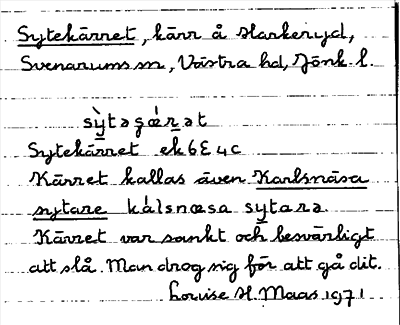 Sytekärret, kärr å Harkeryd,
Svenarums sn, Västra hd, Jönk l.
sỳtəgǽrət
Sytekärret ek6E4c
Kärret kallas även Karlsnäsa
sytare kálsnæsa sytarə.
Kärret var sankt och besvärligt
att slå. Man drog sig för att gå dit.
Louise H. Maas 1971